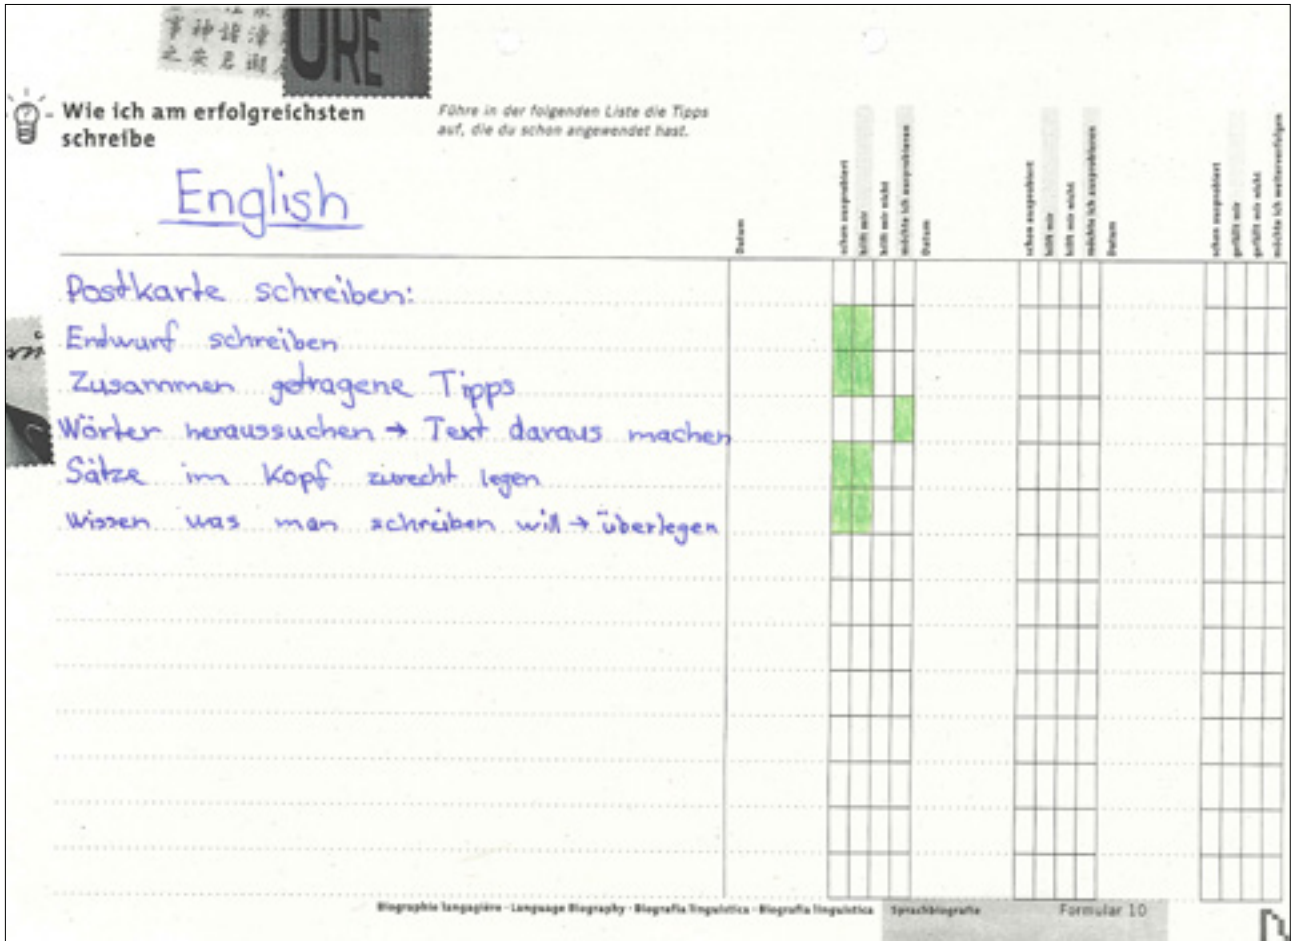 URE
Wie ich am erfolgreichsten
schreibe
Führe in der folgenden Liste die Tipps
auf, die du schon angewendet hast.
English
Datum
schon ausprobiert
hilft mir
hilft mir nicht
möchte ich ausprobieren
Datum
schon ausprobiert
hilft mir
hilft mir nicht
möchte ich ausprobieren
Datum
schon ausprobiert
gefällt mir
gefällt mir nicht
möchte ich weiterverfolgen
Postkarte schreiben:
Endwurf schreiben
Zusammen getragene Tipps
Wörter heraussuchen → Text daraus machen
Sätze im Kopf zurecht legen
Wissen was man schreiben will → überlegen
Biographie langagière · Language Biography · Biografia linguistica · Biografia linguistica
Sprachbiografie
Formular 10